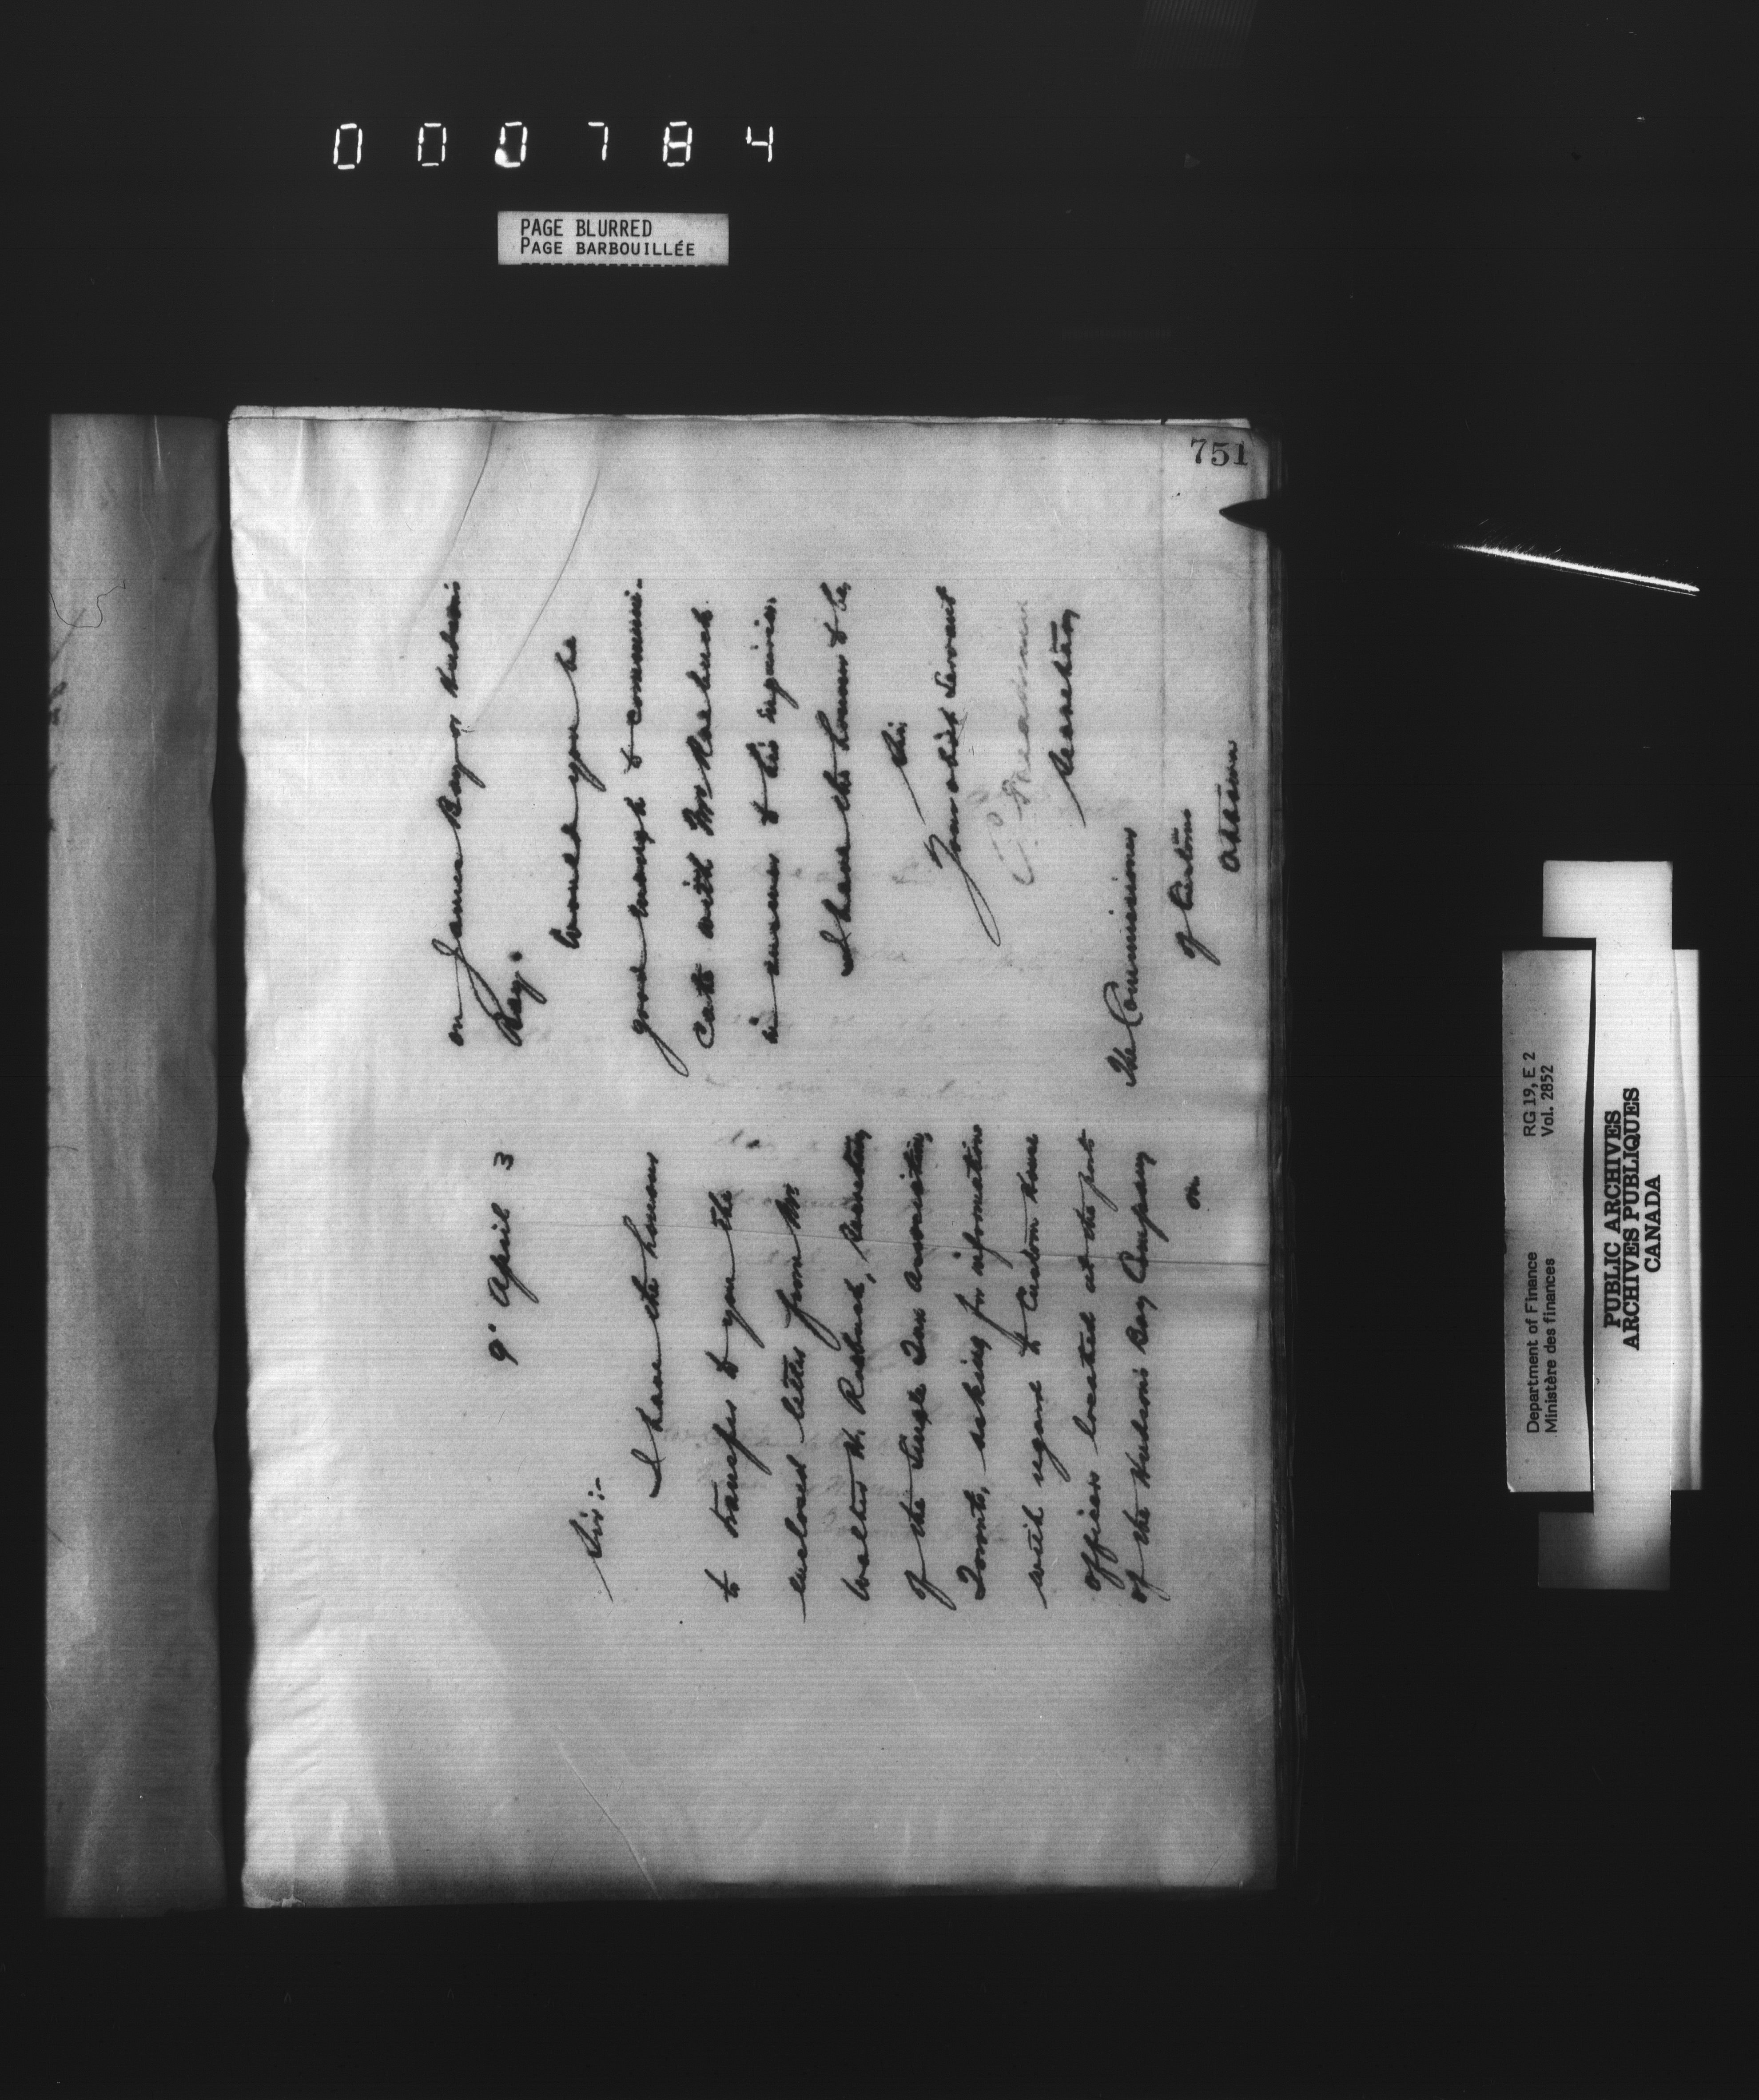 000784
PAGE BLURRED
PAGE BARBOUILLÉE
751
9 April 3
Sir:-
I have the honour
to transfer to you the
enclosed letter from Mr
Walter H. Roebuck, Secretary
of the Single Tax Association
Toronto, asking for information
with regard to Custom House
Officer located at the port
of the Hudson's Bay Company
on
on James Bay or Hudson's
Bay.
Would you be
good enough to communi-
cate with Mr Roebuck
in answer to his inquiries.
I have the honour to be,
Sir,
Your obdt Servant
Secretary
The Commissioner
of Customs
Ottawa
Department of Finance
Ministère des finances
RG 19, E 2
Vol. 2852
PUBLIC ARCHIVES
ARCHIVES PUBLIQUES
CANADA